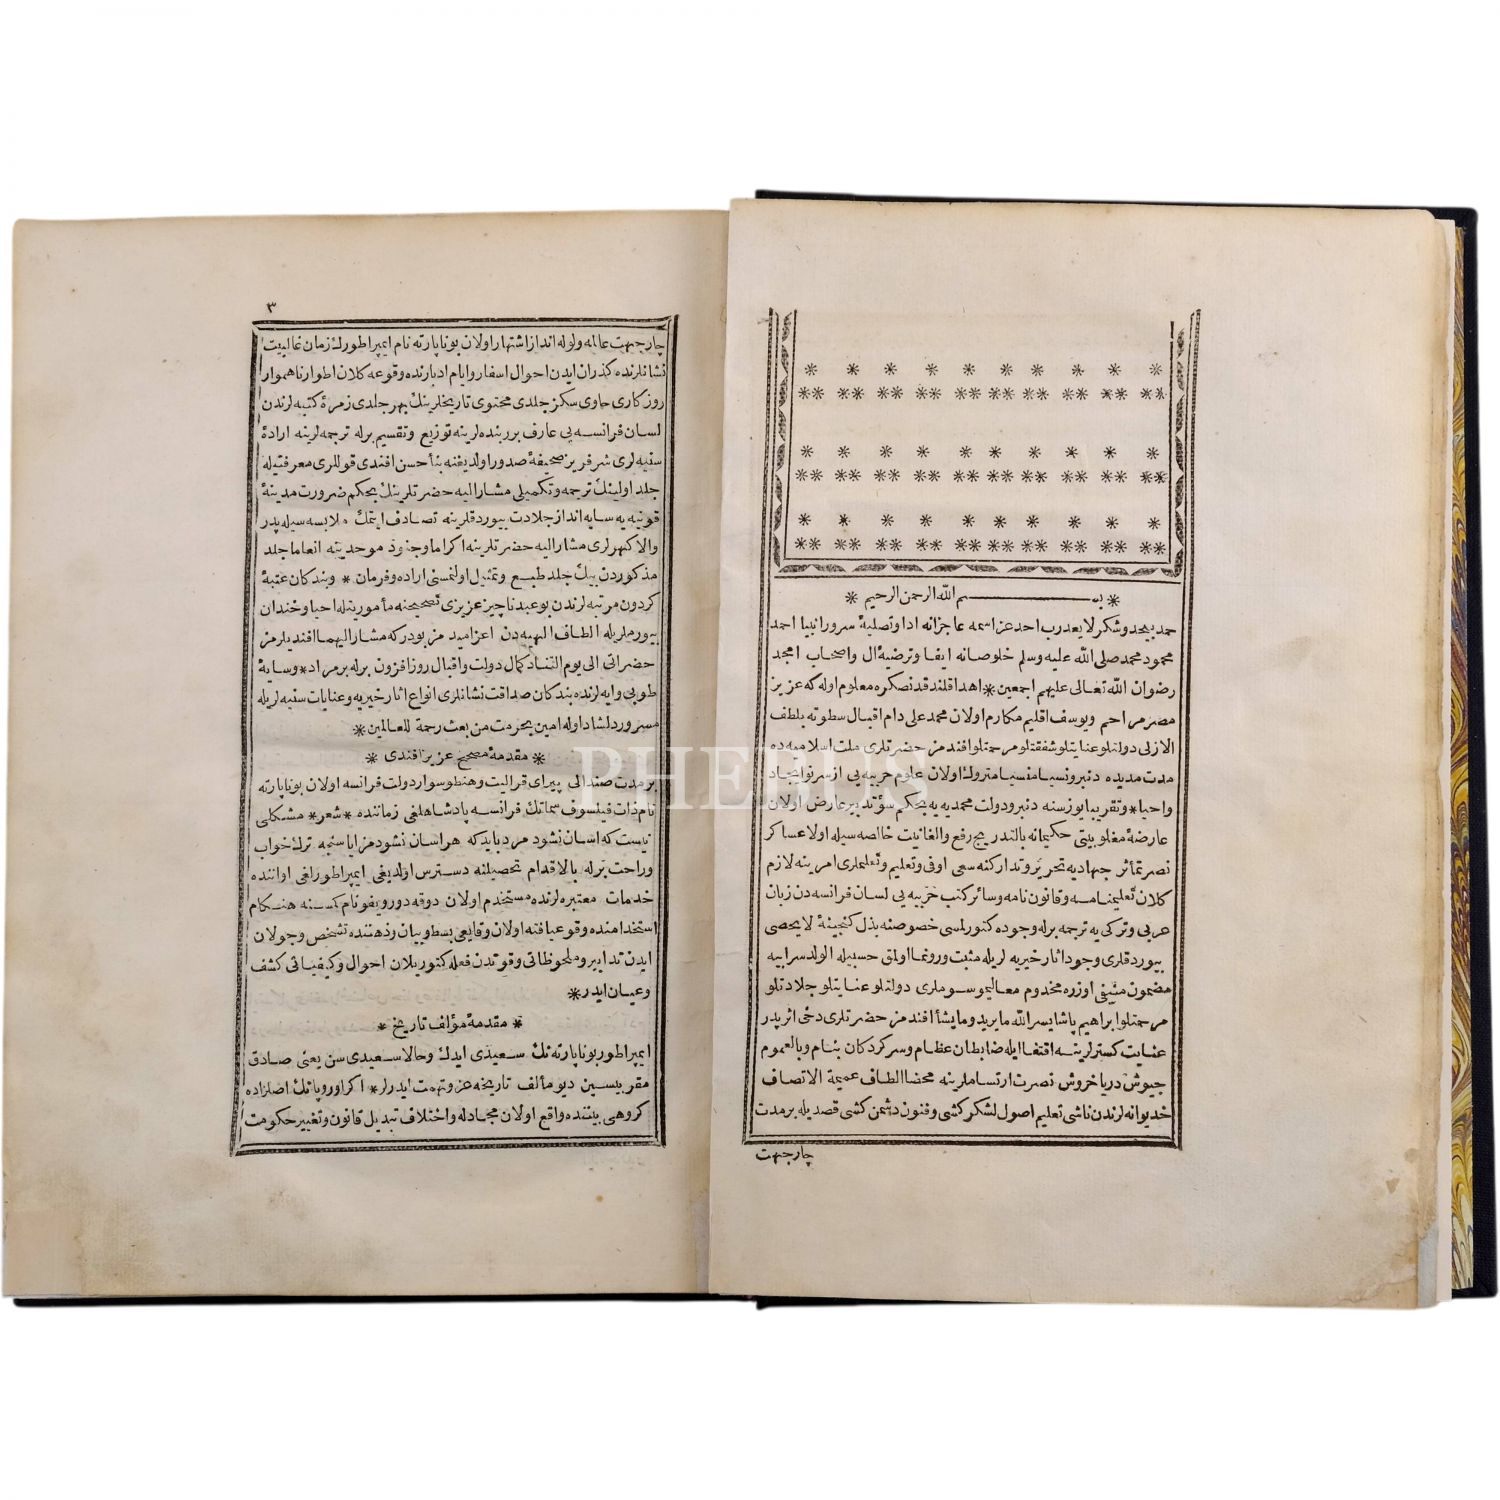 * بسم الله الرحمن الرحيم *
حمد بيحد وشكر لا يعد رب احد عز اسمه عاجزانه ادا وتصلیهٔ سرور انبیا احمد
محمود محمد صلى الله عليه وسلم خلوصانه ايفا وترضيهٔ ال واصحاب امجد
رضوان الله تعالى عليهم اجمعين * اهدا قلندقدنصكره معلوم اوله كه عزيز
مصر مراحم ويوسف اقليم مكارم اولان محمد على دام اقبال سطوته بلطف
الازلى دولتلو عنايتلو شفقتلو مرحمتلو افندمز حضرتلرى ملت اسلاميه ده
مدت مديده دنبرو نسيا منسيا متروك اولان علوم حربيه يى از سر نو ايجاد
واحيا * وتقريبا يوز سنه دنبرو دولت محمديه يه بحكم سؤ تدبير عارض اولان
عارضهٔ مغلوبيتى حكيمانه بالتدريج رفع والغانيت خالصه سيله اولا عساكر
نصرتمأثر جهاديه تحرير وتداركنه سعى اوفى وتعليم وتعلملرى امرينه لازم
كلان تعليمنامه وقانون نامه وسائر كتب حربيه يى لسان فرانسه دن زبان
عربى وتركى يه ترجمه برله وجوده كتورلمسى خصوصنه بذل كنجينهٔ لا يحصى
بيوردقلرى وجود اثار خيريه لريله مثبت ورونما اولمق حسبيله الولد سرابيه
مضمون منيفى اوزره مخدوم معاليموسوملرى دولتلو عنايتلو جلادتلو
مرحمتلو ابراهيم پاشا يسر الله ما يريد وما يشأ افندمز حضرتلرى دخى اثر پدر
عنايت كسترلرينه اقتفا ايله ضابطان عظام وسركردكان بنام وبالعموم
جيوش دريا خروش نصرت ارتساملرينه محضا الطاف عميمة الاتصاف
خديوانه لرندن ناشى تعليم اصول لشكر كشى وفنون دشمن كشى قصديله برمدت
چارجهت
٣
چارجهت عالمه ولوله انداز اشتهار اولان بوناپارته نام ايمپراطورك زمان غالبيت
نشانلرنده كذران ايدن احوال اسفار وايام ادبارنده وقوعه كلان اطوار ناهموار
روزكارى حاوى سكز جلدى محتوى تاريخلرينك بهر جلدى زمرهٔ كتبه لرندن
لسان فرانسه يى عارف برر بنده لرينه توزيع وتقسيم برله ترجمه لرينه ارادهٔ
سنيه لرى شرفريز صحيفهٔ صدور اولديغنه بنأ حسن افندى قوللرى معرفتيله
جلد اولينك ترجمه وتكميلى مشار اليه حضرتلرينك بحكم ضرورت مدينهٔ
قونيه يه سايه انداز جلادت بيوردقلرينه تصادف ايتمك ملابسه سيله پدر
والاكهرلرى مشار اليه حضرتلرينه اكراما وجنود موحدينه انعاما جلد
مذكوردن بيك جلد طبع وتمثيل اولنمسنى اراده وفرمان * وبندكان عتبهٔ
كردون مرتبه لرندن بو عبد ناچيز عزيزى تصحيحنه مأموريتله احيا وخندان
بيورملريله الطاف الهيه دن اعز اميدمز بودركه مشار اليهما افنديلرمز
حضراتى الى يوم التناد كمال دولت واقبال روز افزون برله برمراد * وسايهٔ
طوبى وايه لرنده بندكان صداقت نشانلرى انواع اثار خيريه وعنايات سنيه لريله
مسرور دلشاد اوله امين بحرمت من بعث رحمة للعالمين *
* مقدمهٔ مصحح عزيز افندى *
برمدت صندالى پيراى قراليت وهنطوسوار دولت فرانسه اولان بوناپارته
نام ذات فيلسوف سماتك فرانسه پادشاهلغى زماننده * شعر * مشكلى
نيست كه اسان نشود مرد بايد كه هراسان نشود مزاياسنجه ترك خواب
وراحت برله بالاقدام تحصيلنه دسترس اولديغى ايمپراطورلغى اواننده
خدمات معتبره لرنده مستخدم اولان دوقه دورويغو نام كسنه هنكام
استخدامنده وقوعيافته اولان وقايعى بسط وبيان وذهننده تشخص وجولان
ايدن تدابير وملحوظاتى وقوتدن فعله كتوريلان احوال وكيفياتى كشف
وعيان ايدر *
* مقدمهٔ مؤلف تاريخ *
ايمپراطور بوناپارته نك سعيدى ايدك وحالا سعيدى سن يعنى صادق
مقربيسين ديو مألف تاريخه عزو تهمت ايدرلر * اكر اوروپانك اصلزاده
كروهى بيننده واقع اولان مجادله واختلاف تبديل قانون وتغيير حكومت
PHEBUS